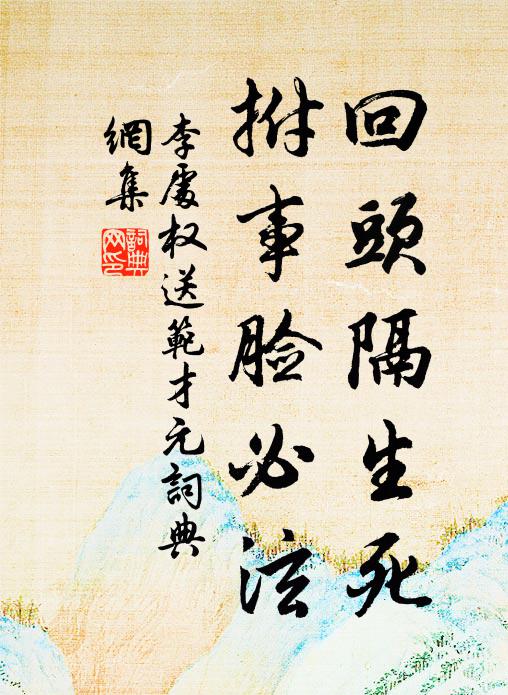 回頭隔生死
拊事脸必泫
李處权送範才元詞典
網集
詞典网印